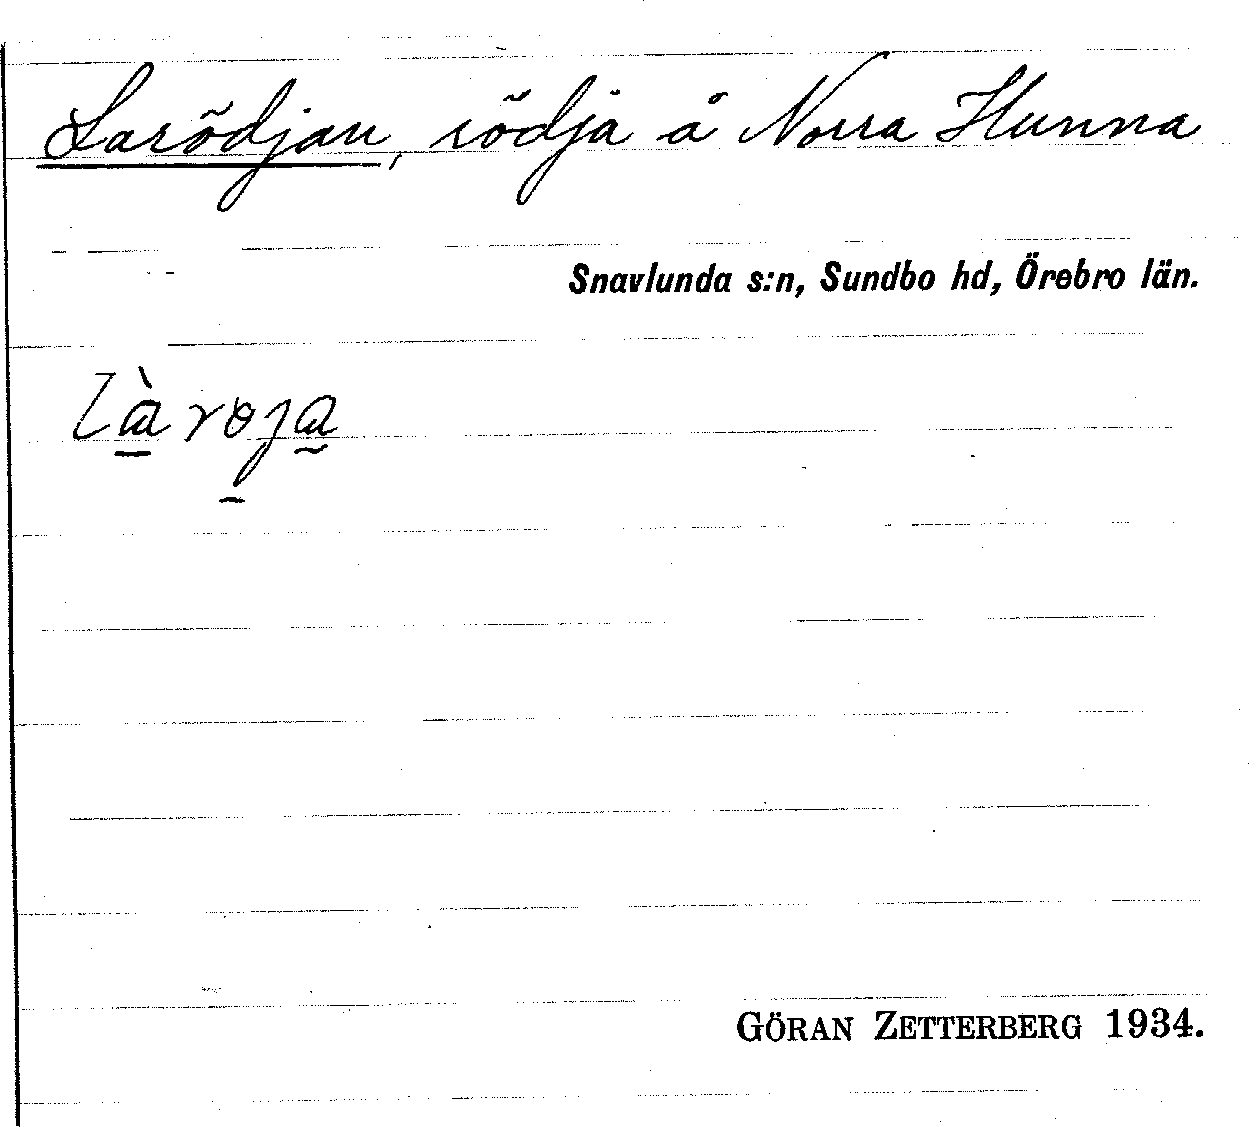 Larödjan, rödja å Norra Hunna
Snavlunda s:n, Sundbo hd, Örebro län.
làrɵja
GÖRAN ZETTERBERG 1934.